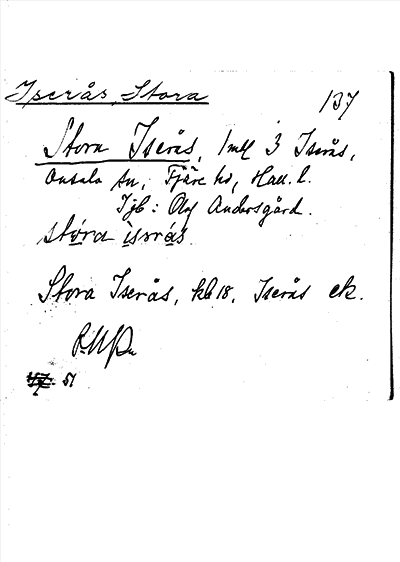 Iserås, Stora
137
Stora Iserås, 1 mtl 3 Iserås,
Onsala sn, Fjäre hd, Hall. l.
Ijb: Olof Andersgård.
stóra ìsərás
Stora Iserås, kb 18, Iserås ek.
51